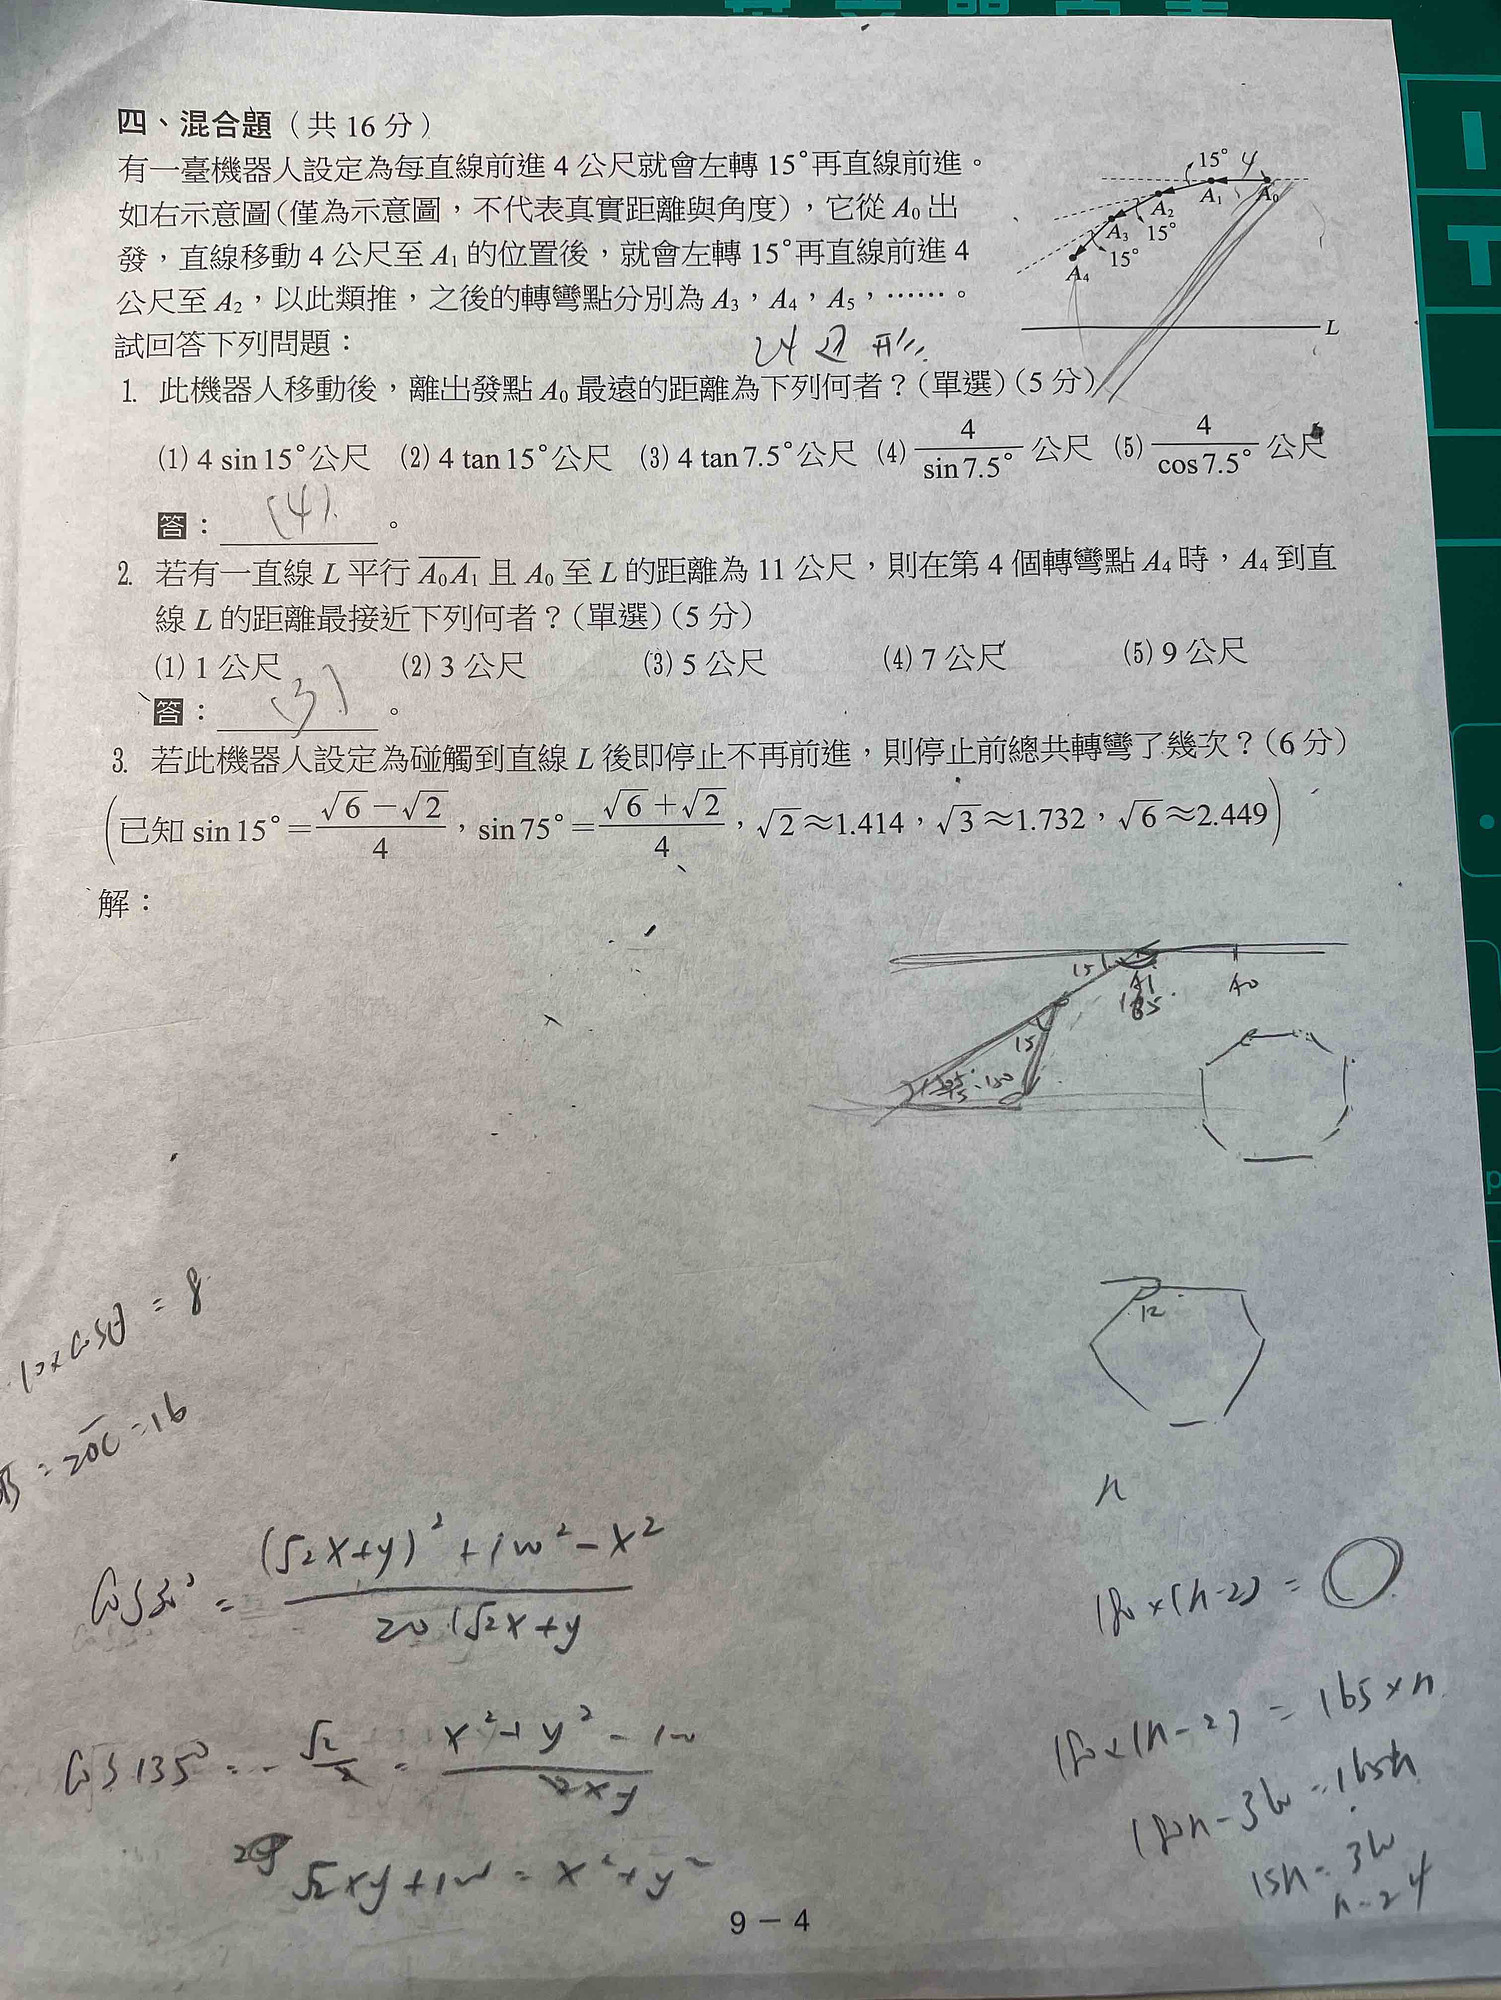 四、混合題（共 16 分）
有一臺機器人設定為每直線前進 4 公尺就會左轉 15°再直線前進。
如右示意圖(僅為示意圖，不代表真實距離與角度)，它從 A₀ 出
發，直線移動 4 公尺至 A₁ 的位置後，就會左轉 15°再直線前進 4
公尺至 A₂，以此類推，之後的轉彎點分別為 A₃，A₄，A₅，……。
試回答下列問題：
15° 4
A₀
A₁
A₂
15°
A₃
15°
A₄
L
24 形
1. 此機器人移動後，離出發點 A₀ 最遠的距離為下列何者？(單選)(5 分)
(1) 4 sin 15°公尺 (2) 4 tan 15°公尺 (3) 4 tan 7.5°公尺 (4) 4/sin 7.5° 公尺 (5) 4/cos 7.5° 公尺
答： (4) 。
2. 若有一直線 L 平行 A₀A₁ 且 A₀ 至 L 的距離為 11 公尺，則在第 4 個轉彎點 A₄ 時，A₄ 到直
線 L 的距離最接近下列何者？(單選)(5 分)
(1) 1 公尺 (2) 3 公尺 (3) 5 公尺 (4) 7 公尺 (5) 9 公尺
答： (3) 。
3. 若此機器人設定為碰觸到直線 L 後即停止不再前進，則停止前總共轉彎了幾次？(6 分)
(已知 sin 15°=(√6−√2)/4，sin 75°=(√6+√2)/4，√2≈1.414，√3≈1.732，√6≈2.449)
解：
15
A1
A0
15
12
10×cosθ = 8
= 2OC = 16
n
cos30° = ((√2x+y)²+100−x²)/(20(√2x+y)
180×(n-2) =
cos135° = -√2/2 = (x²+y²-100)/(2xy)
180×(n-2) = 165×n
180n-360 = 165n
√2xy+100 = x²+y²
15n = 360
n=24
9－4